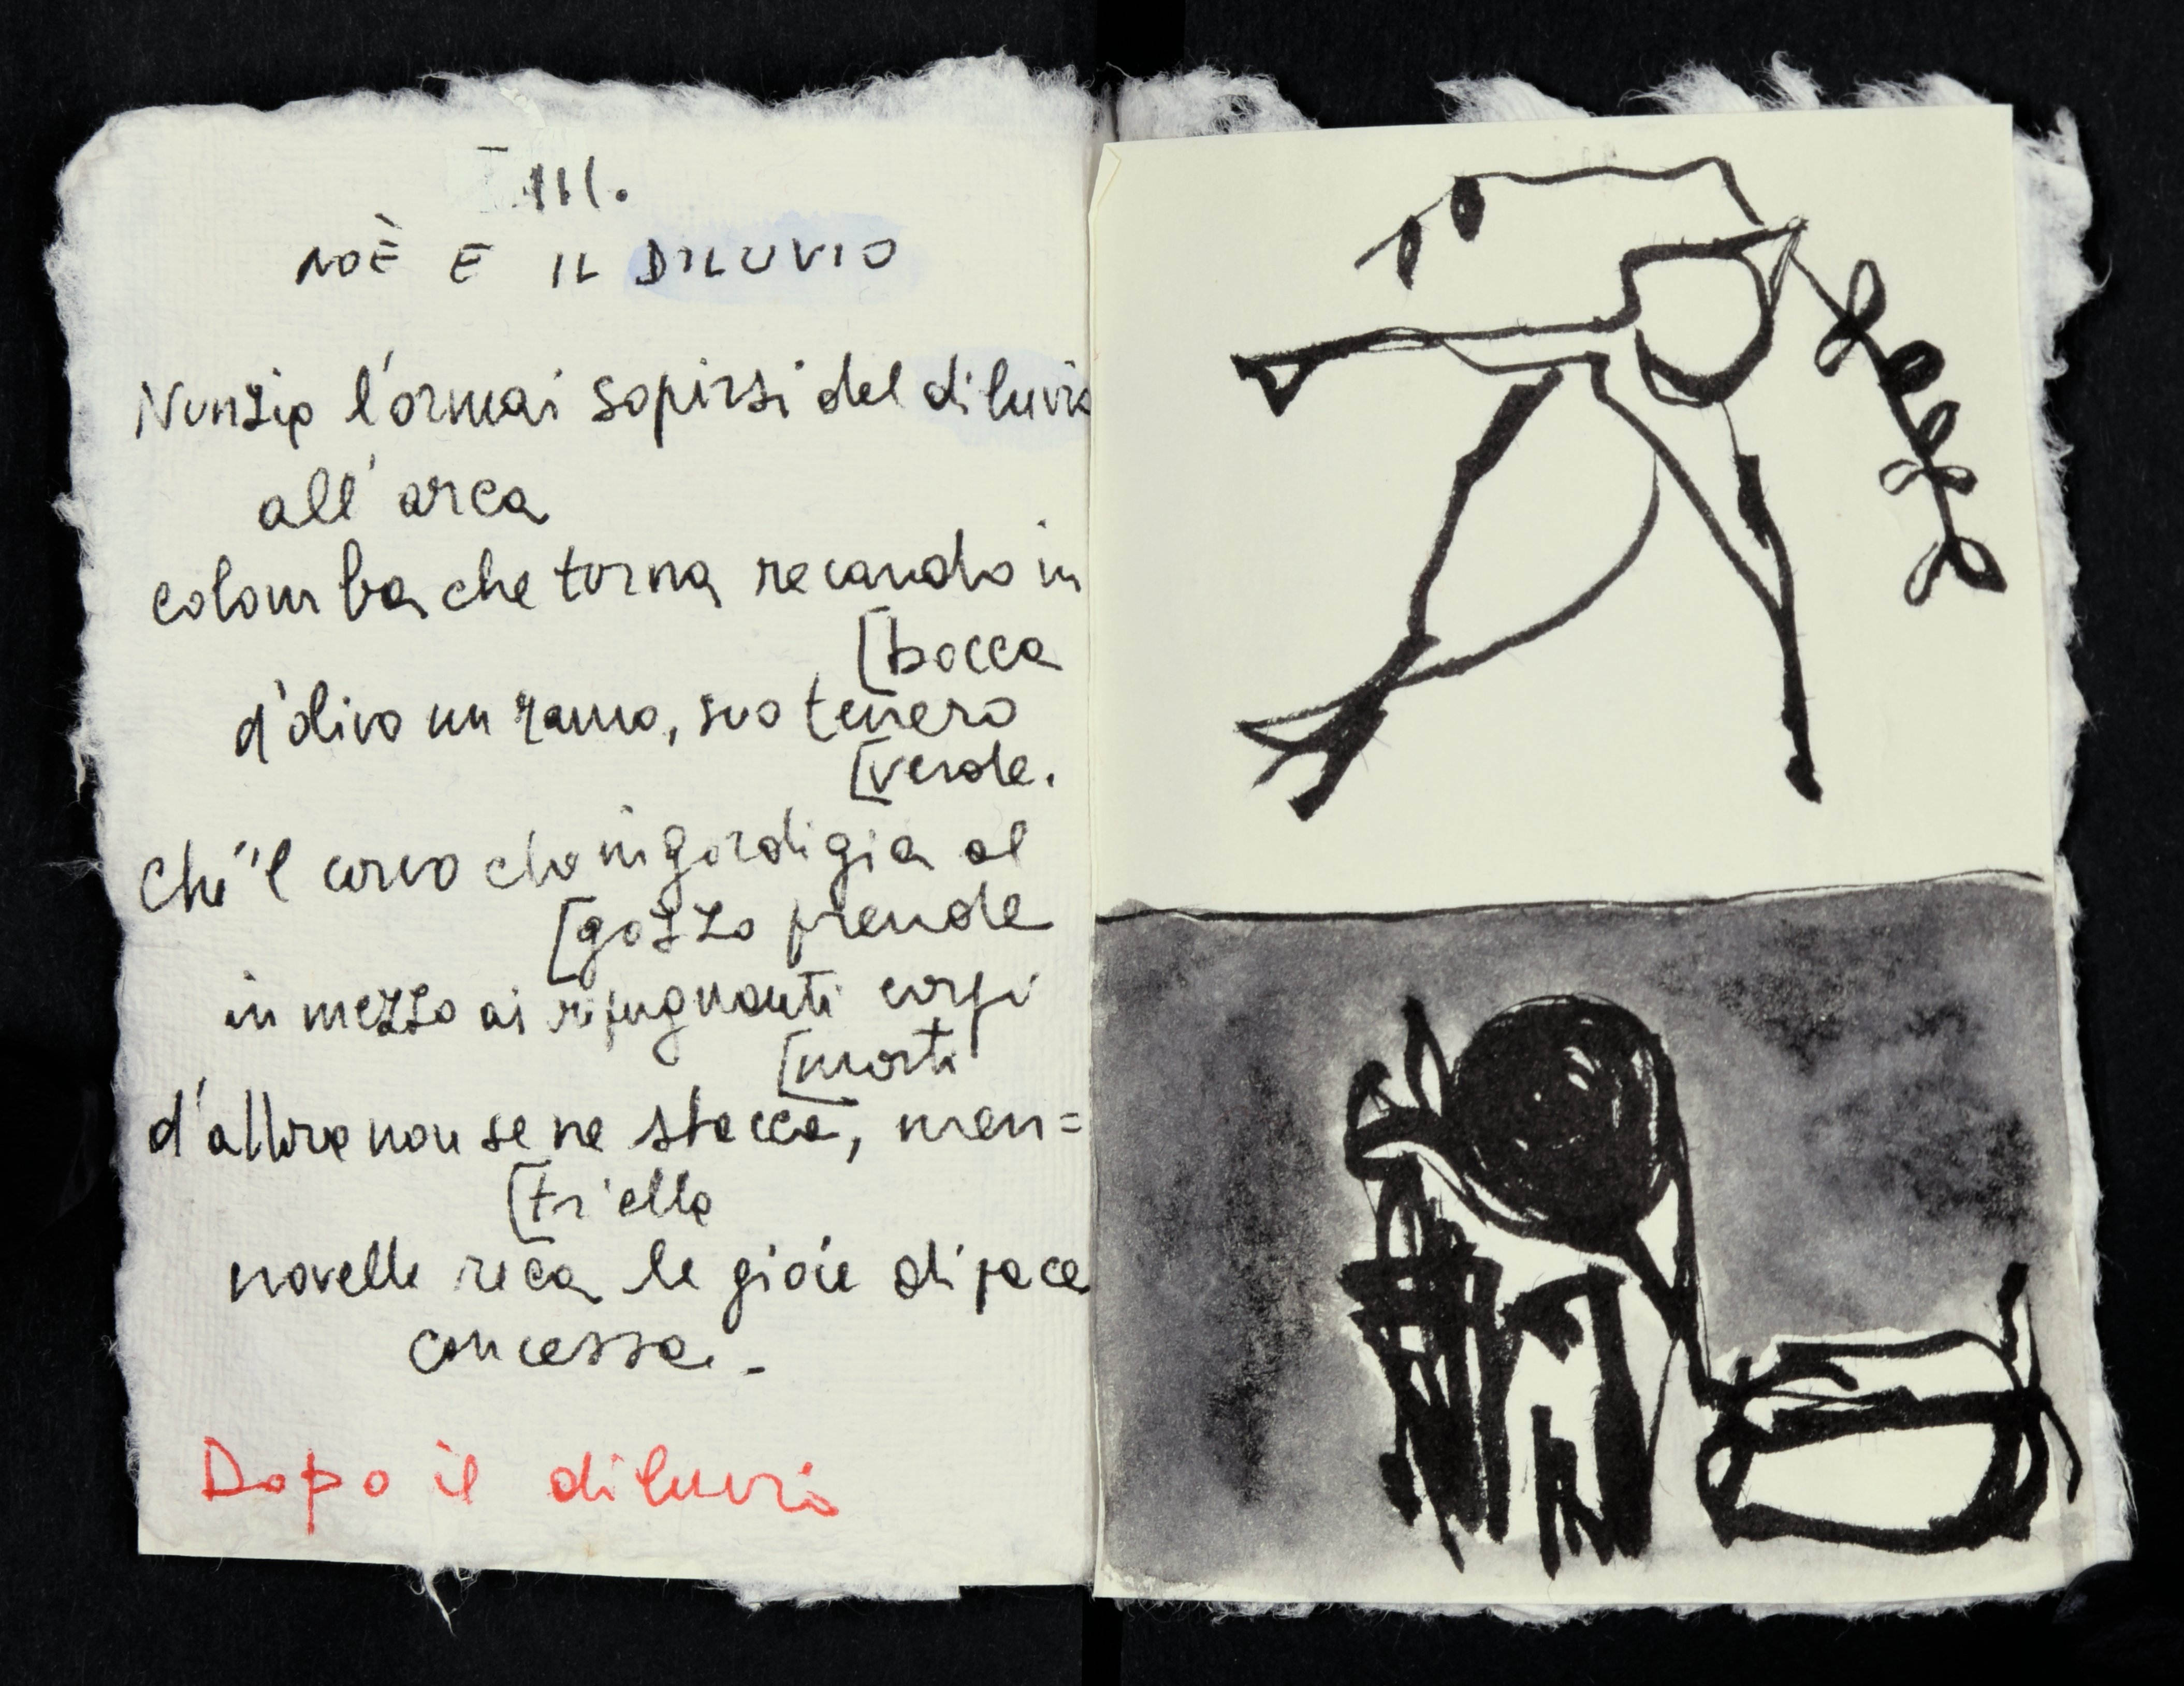 III.
NOÈ E IL DILUVIO
Nunzia l'ormai sopirsi del diluvio
all'arca
colomba che torna recando in
[bocca
d'olivo un ramo, suo tenero
[verde.
Ché 'l corvo ch'ingordigia al
[gozzo prende
in mezzo ai ripugnanti corpi
[morti
d'allora non se ne stacca, men=
[tr'ella
novelle reca le gioie di pace
concessa.-
Dopo il diluvio